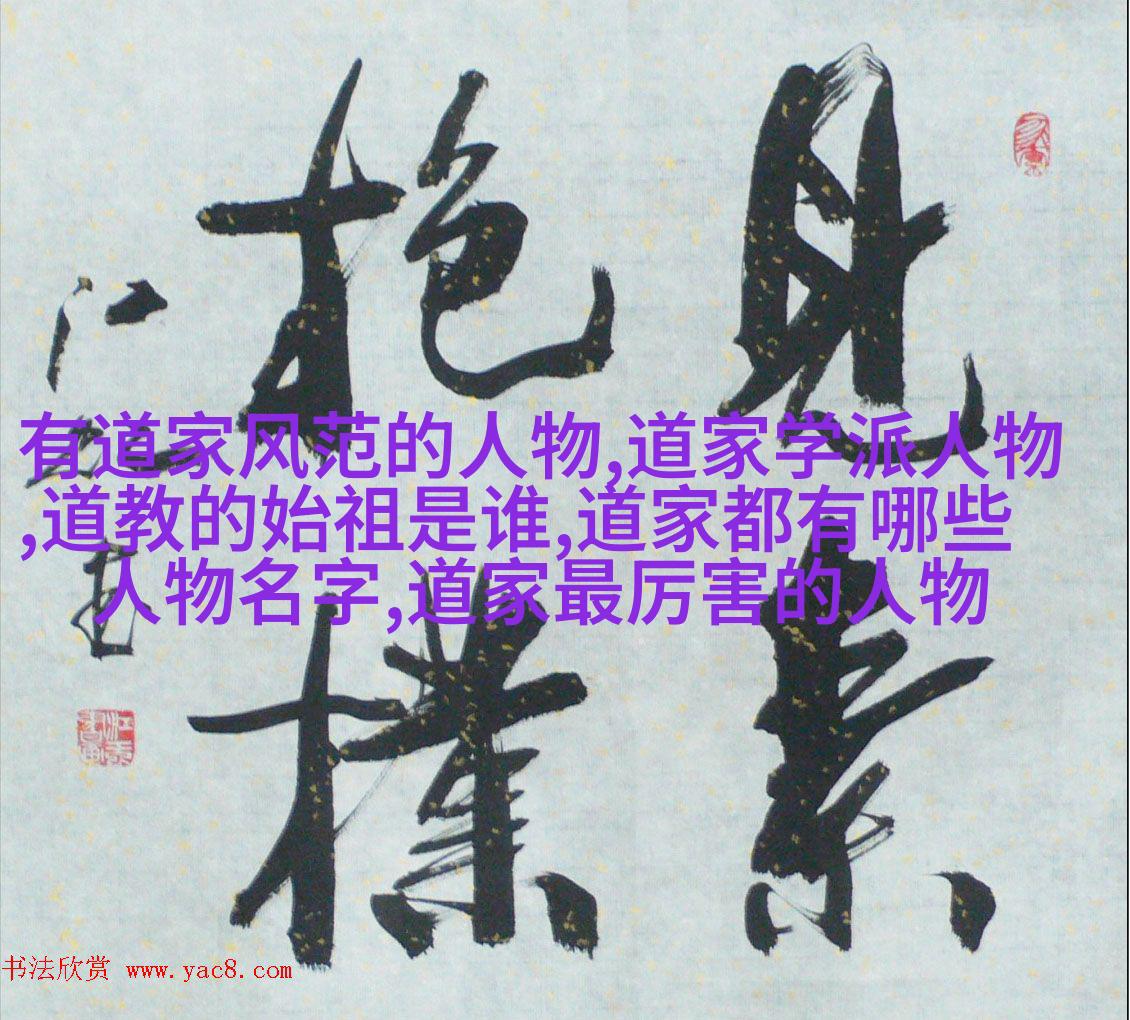 見素
抱樸
有道家风范的人物,道家学派人物
,道教的始祖是谁,道家都有哪些
人物名字,道家最厉害的人物
书法欣赏 www.yac8.com